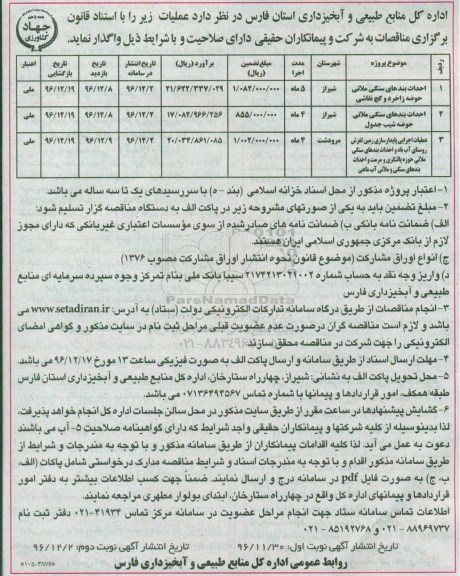 اداره کل منابع طبیعی و آبخیزداری استان فارس در نظر دارد عملیات زیر را با استناد قانون
برگزاری مناقصات به شرکت و پیمانکاران حقیقی دارای صلاحیت و با شرایط ذیل واگذار نماید.
جهاد
کشاورزی
ردیف موضوع پروژه شهرستان مدت اجرا مبلغ تضمین (ریال) برآورد (ریال) تاریخ انتشار در سامانه تاریخ بازدید تاریخ بازگشایی اعتبار
۱ احداث بندهای سنگی ملاتی حوضه زاخرد و گچ نقاشی شیراز ۵ ماه ۱/۰۸۲/۰۰۰/۰۰۰ ۲۱/۶۲۲/۳۳۷/۰۲۹ ۹۶/۱۲/۲ ۹۶/۱۲/۸ ۹۶/۱۲/۱۹ ملی
۲ احداث بندهای سنگی ملاتی حوضه شیب جدول شیراز ۴ ماه ۸۵۵/۰۰۰/۰۰۰ ۱۷/۰۸۲/۹۶۶/۲۵۶ ۹۶/۱۲/۲ ۹۶/۱۲/۸ ۹۶/۱۲/۱۹ ملی
۳ عملیات اجرایی پایدارسازی زمین لغزش روستای آب باد و احداث بندهای سنگی ملاتی حوزه پالنگری و مرمت و احداث بندهای سنگی و ملاتی آب ماهی مرودشت ۴ ماه ۱/۰۰۲/۰۰۰/۰۰۰ ۲۰/۰۳۴/۸۶۱/۰۸۵ ۹۶/۱۲/۲ ۹۶/۱۲/۸ ۹۶/۱۲/۱۹ ملی
۱- اعتبار پروژه مذکور از محل اسناد خزانه اسلامی (بند - ه) با سررسیدهای یک تا سه ساله می باشد.
۲- مبلغ تضمین باید به یکی از صورتهای مشروحه زیر در پاکت الف به دستگاه مناقصه گزار تسلیم شود:
الف) ضمانت نامه بانکی ب) ضمانت نامه های صادرشده از سوی مؤسسات اعتباری غیربانکی که دارای مجوز
لازم از بانک مرکزی جمهوری اسلامی ایران هستند.
ج) انواع اوراق مشارکت (موضوع قانون نحوه انتشار اوراق مشارکت مصوب ۱۳۷۶)
د) واریز وجه نقد به حساب شماره ۲۱۷۴۲۱۳۰۲۱۰۰۲ سیبا بانک ملی بنام تمرکز وجوه سپرده سرمایه ای منابع
طبیعی و آبخیزداری فارس
۳- انجام مناقصات از طریق درگاه سامانه تدارکات الکترونیکی دولت (ستاد) به آدرس: www.setadiran.ir می
باشد و لازم است مناقصه گران درصورت عدم عضویت قبلی مراحل ثبت نام در سایت مذکور و گواهی امضای
الکترونیکی را جهت شرکت در مناقصه محقق سازند.
۴- مهلت ارسال اسناد از طریق سامانه و ارسال پاکت الف به صورت فیزیکی ساعت ۱۳ مورخ ۹۶/۱۲/۱۷ می باشد.
۵- محل تحویل پاکت الف به نشانی: شیراز، چهارراه ستارخان، اداره کل منابع طبیعی و آبخیزداری استان فارس
طبقه همکف، امور قراردادها و پیمانها با شماره تماس ۰۷۱۳۶۴۹۴۵۶۷ می باشد.
۶- گشایش پیشنهادها در ساعت مقرر از طریق سایت مذکور در محل سالن جلسات اداره کل انجام خواهد پذیرفت،
لذا بدینوسیله از کلیه شرکتها و پیمانکاران حقیقی واجد شرایط که دارای گواهینامه صلاحیت ۵- آب می باشند
دعوت به عمل می آید. لذا کلیه اقدامات پیمانکاران از طریق سامانه مذکور و با توجه به مندرجات و شرایط از
طریق سامانه مذکور اقدام و با توجه به مندرجات اسناد و شرایط مناقصه مدارک درخواستی شامل پاکات (الف،
ب، ج) به صورت فایل pdf در سامانه درج و ارسال نمایند. ضمناً جهت کسب اطلاعات بیشتر به دفتر امور
قراردادها و پیمانهای اداره کل واقع در چهارراه ستارخان، ابتدای بولوار مطهری مراجعه نمایند.
اطلاعات تماس سامانه ستاد جهت انجام مراحل عضویت در سامانه مرکز تماس ۴۱۹۳۴-۰۲۱ دفتر ثبت نام
۸۸۹۶۹۷۳۷ - ۰۲۱ و ۸۵۱۹۲۷۶۸ - ۰۲۱
تاریخ انتشار آگهی نوبت اول: ۹۶/۱۱/۳۰ تاریخ انتشار آگهی نوبت دوم: ۹۶/۱۲/۲
روابط عمومی اداره کل منابع طبیعی و آبخیزداری فارس
ParsNamadData